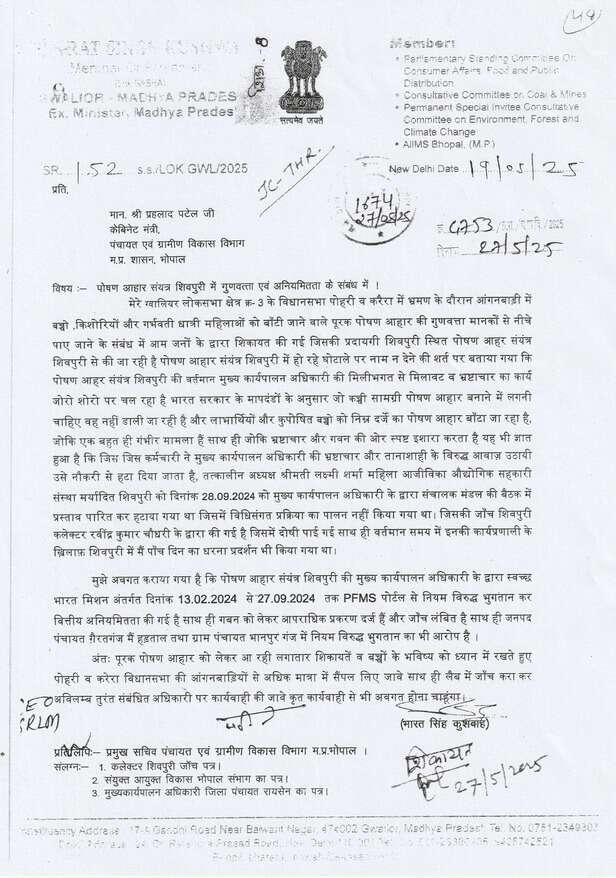 49
BHARAT SINGH KUSHWAH
Member of Parliament
(LOK SABHA)
GWALIOR - MADHYA PRADESH
Ex. Minister, Madhya Pradesh
सत्यमेव जयते
Member:
• Parliamentary Standing Committee On
Consumer Affairs, Food and Public
Distribution
• Consultative Committee on Coal & Mines
• Permanent Special Invitee Consultative
Committee on Environment, Forest and
Climate Change
• AIIMS Bhopal, (M.P.)
SR. 152 s.s./LOK.GWL/2025
JC-THR.
New Delhi Date 19/05/25
प्रति,
1674
27/05/25
2025
27/5/25
मान. श्री प्रहलाद पटेल जी
केबिनेट मंत्री,
पंचायत एवं ग्रामीण विकास विभाग
म.प्र. शासन, भोपाल
विषय :– पोषण आहार संयत्र शिवपुरी में गुणवत्ता एवं अनियमितता के संबंध में ।
मेरे ग्वालियर लोकसभा क्षेत्र क्र- 3 के विधानसभा पोहरी व करैरा में भ्रमण के दौरान आंगनबाड़ी में
बच्चो ,किशोरियों और गर्भवती धात्री महिलाओं को बाँटी जाने वाले पूरक पोषण आहार की गुणवत्ता मानकों से नीचे
पाए जाने के संबंध में आम जनों के द्वारा शिकायत की गई जिसकी प्रदायगी शिवपुरी स्थित पोषण आहर संयंत्र
शिवपुरी से की जा रही है पोषण आहार संयंत्र शिवपुरी में हो रहे घोटाले पर नाम न देने की शर्त पर बताया गया कि
पोषण आहर संयंत्र शिवपुरी की वर्तमान मुख्य कार्यपालन अधिकारी की मिलीभगत से मिलावट व भ्रष्टाचार का कार्य
जोरो शोरो पर चल रहा है भारत सरकार के मापदंडों के अनुसार जो कच्ची सामग्री पोषण आहार बनाने में लगनी
चाहिए वह नहीं डाली जा रही है और लाभार्थियों और कुपोषित बच्चो को निम्न दर्जे का पोषण आहार बाँटा जा रहा है,
जोकि एक बहुत ही गंभीर मामला हैं साथ ही जोकि भ्रष्टाचार और गवन की ओर स्पष्ट इशारा करता है यह भी ज्ञात
हुआ है कि जिस जिस कर्मचारी ने मुख्य कार्यपालन अधिकारी की भ्रष्टाचार और तानाशाही के विरुद्ध आवाज़ उठायी
उसे नौकरी से हटा दिया जाता है, तत्कालीन अध्यक्ष श्रीमती लक्ष्मी शर्मा महिला आजीविका औद्योगिक सहकारी
संस्था मर्यादित शिवपुरी को दिनांक 28.09.2024 को मुख्य कार्यपालन अधिकारी के द्वारा संचालक मंडल की बैठक में
प्रस्ताव पारित कर हटाया गया था जिसमें विधिसंगत प्रक्रिया का पालन नहीं किया गया था। जिसकी जाँच शिवपुरी
कलेक्टर रवींद्र कुमार चौधरी के द्वारा की गई है जिसमें दोषी पाई गई साथ ही वर्तमान समय में इनकी कार्यप्रणाली के
ख़िलाफ़ शिवपुरी में मैं पाँच दिन का धरना प्रदर्शन भी किया गया था।
मुझे अवगत कराया गया है कि पोषण आहार संयंत्र शिवपुरी की मुख्य कार्यपालन अधिकारी के द्वारा स्वच्छ
भारत मिशन अंतर्गत दिनांक 13.02.2024 से 27.09.2024 तक PFMS पोर्टल से नियम विरुद्ध भुगतान कर
वित्तीय अनियमितता की गई है साथ ही गवन को लेकर आपराधिक प्रकरण दर्ज हैं और जाँच लंबित है साथ ही जनपद
पंचायत ग़ैरतगंज मैं हड़ताल तथा ग्राम पंचायत भानपुर गंज में नियम विरुद्ध भुगतान का भी आरोप है ।
अंतः पूरक पोषण आहार को लेकर आ रही लगातार शिकायतें व बच्चों के भविष्य को ध्यान में रखते हुए
पोहरी व करेरा विधानसभा की आंगनबाड़ियों से अधिक मात्रा में सैंपल लिए जावे साथ ही लैब में जाँच करा कर
अविलम्ब तुरंत संबंधित अधिकारी पर कार्यवाही की जावे कृत कार्यवाही से भी अवगत होना चाहूंगा।
CEO
SRLM
(भारत सिंह कुशवाह)
प्रतिलिपि:– प्रमुख सचिव पंचायत एवं ग्रामीण विकास विभाग म.प्र.भोपाल ।
संलग्नः– 1. कलेक्टर शिवपुरी जाँच पत्र।
2. संयुक्त आयुक्त विकास भोपाल संभाग का पत्र।
3. मुख्यकार्यपालन अधिकारी जिला पंचायत रायसेन का पत्र।
शिकायत
27/5/2025
Constituency Address : 17-A Gandhi Road Near Balwant Nagar, 474002 Gwalior, Madhya Pradesh Tel. No. 0751-2349303